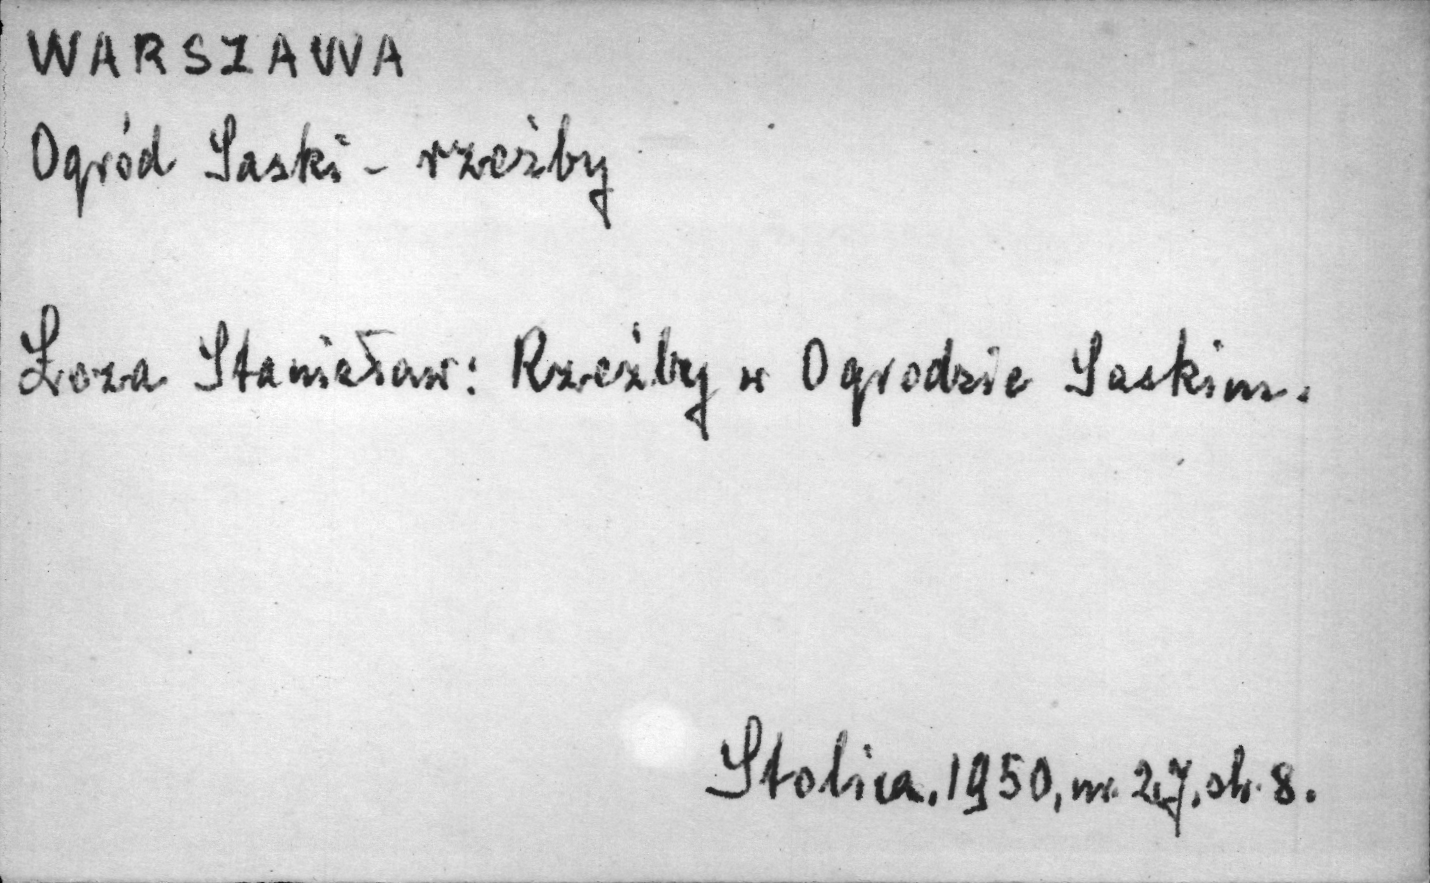 WARSZAWA
Ogród Saski - rzeźby
Łoza Stanisław: Rzeźby w Ogrodzie Saskim.
Stolica. 1950, nr. 27, str. 8.